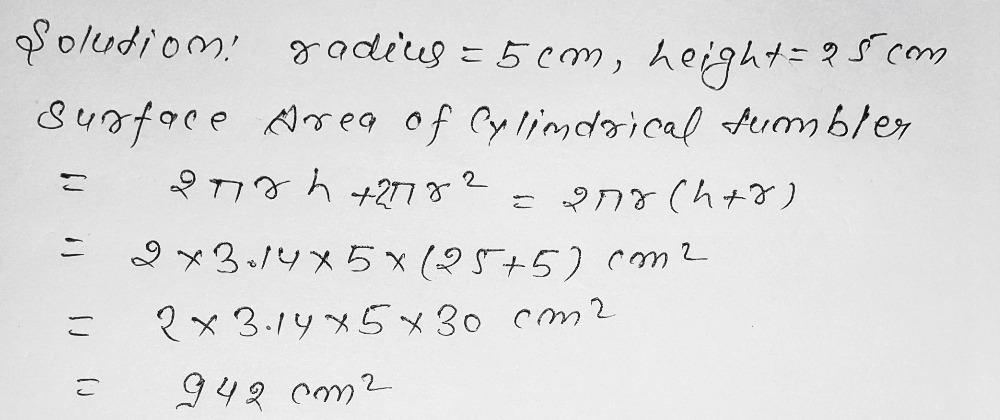 Solution: radius = 5 cm, height = 25 cm
Surface Area of Cylindrical tumbler
= 2πrh + 2πr² = 2πr (h+r)
= 2 × 3.14 × 5 × (25+5) cm²
= 2 × 3.14 × 5 × 30 cm²
= 942 cm²